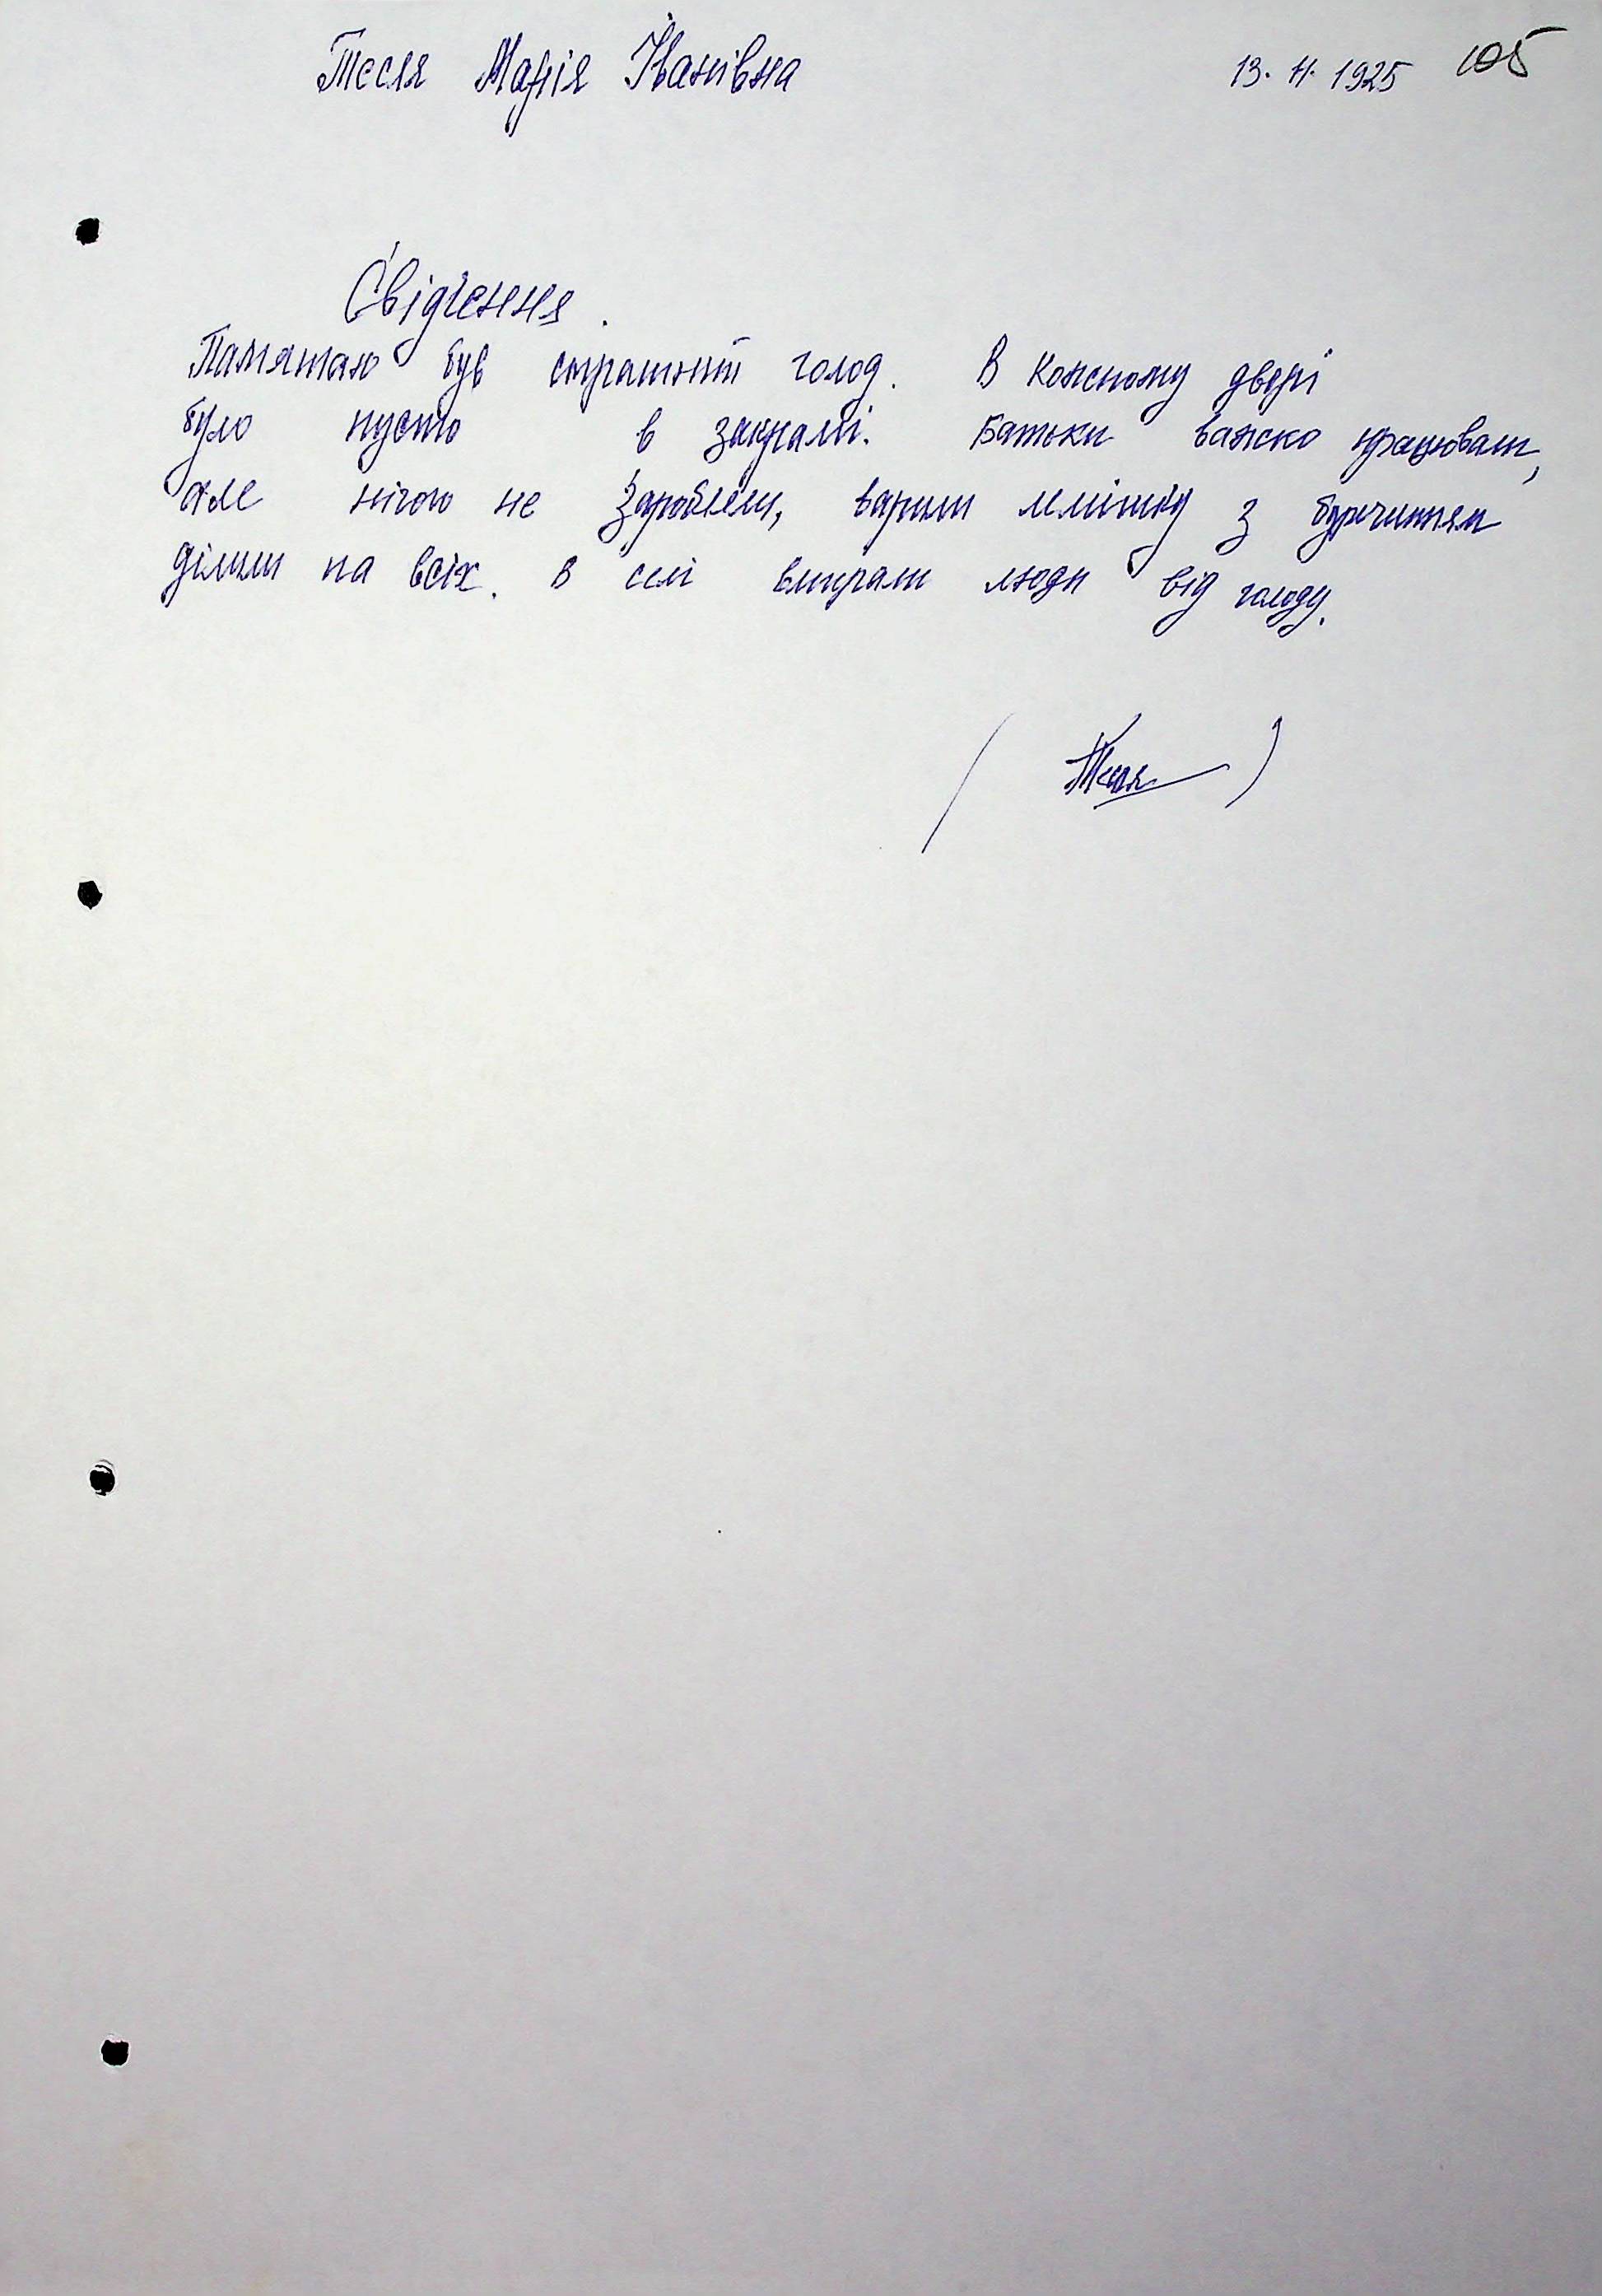 Тесля Марія Іванівна 13. 11. 1925 105
Свідчення.
Памятаю був страшний голод. В кожному дворі
було пусто в закромі. Батьки важко працювали,
але нічого не заробляли, варили лемішку з бурячинням
ділили на всіх. в селі вмирали люди від голоду.
( Тесля )